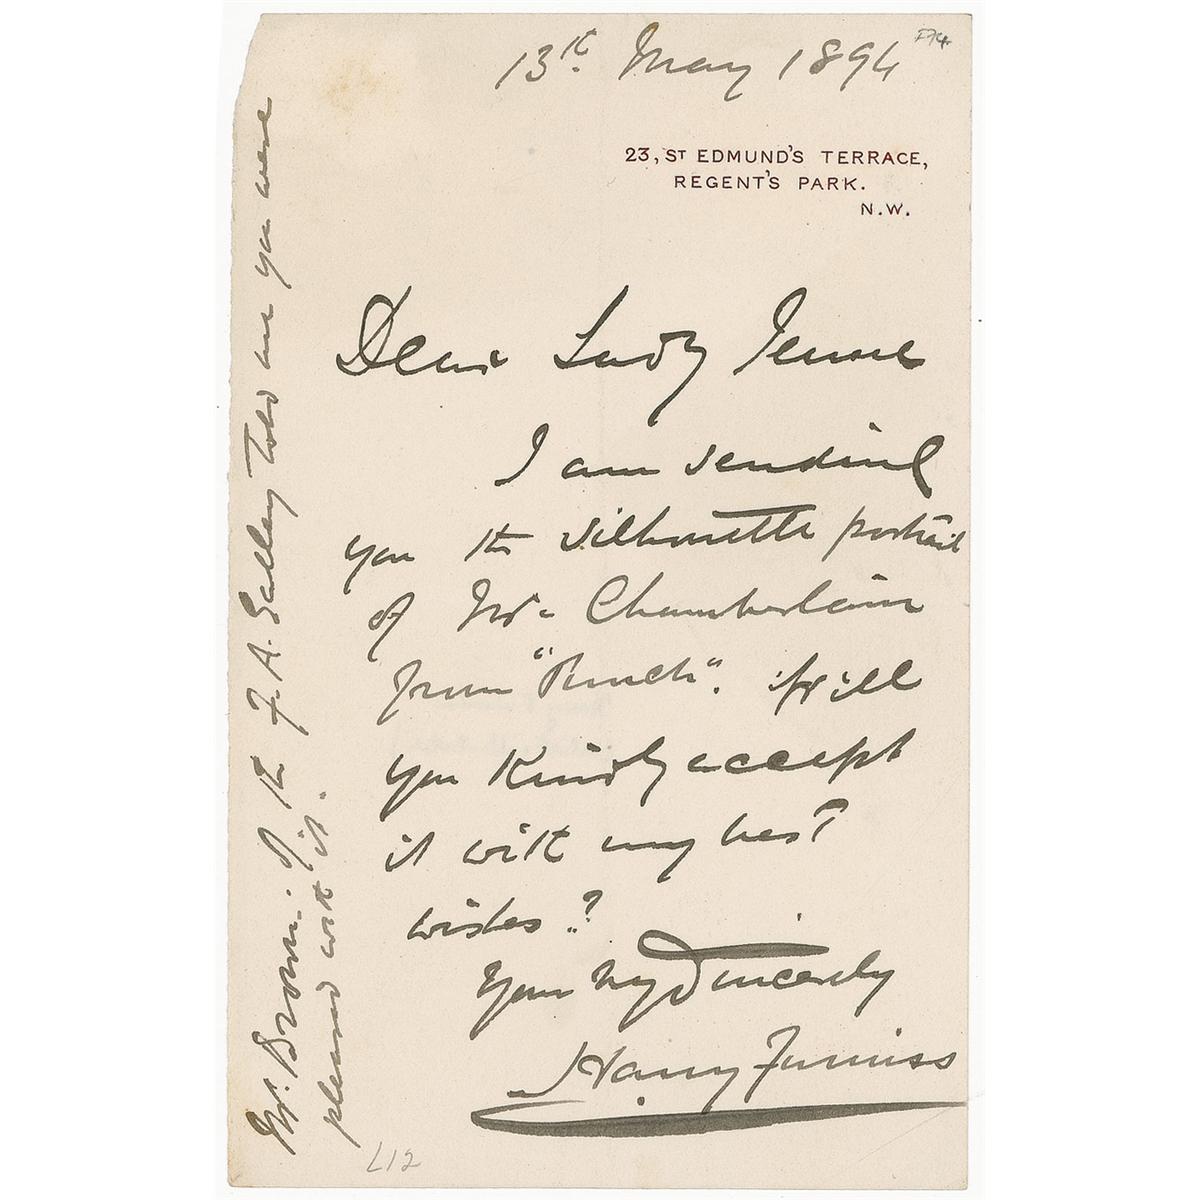 13th May 1894
23, ST EDMUND'S TERRACE,
REGENT'S PARK.
N.W.
Dear Lady Jeune
I am sending
you the silhouette portrait
of Mr. Chamberlain
from "Punch". Will
you kindly accept
it with my best
wishes?
Yours vy sincerely
Harry Furniss
Mr. Brown. of the F. A. Gallery told me you were
pleased with it.
L12